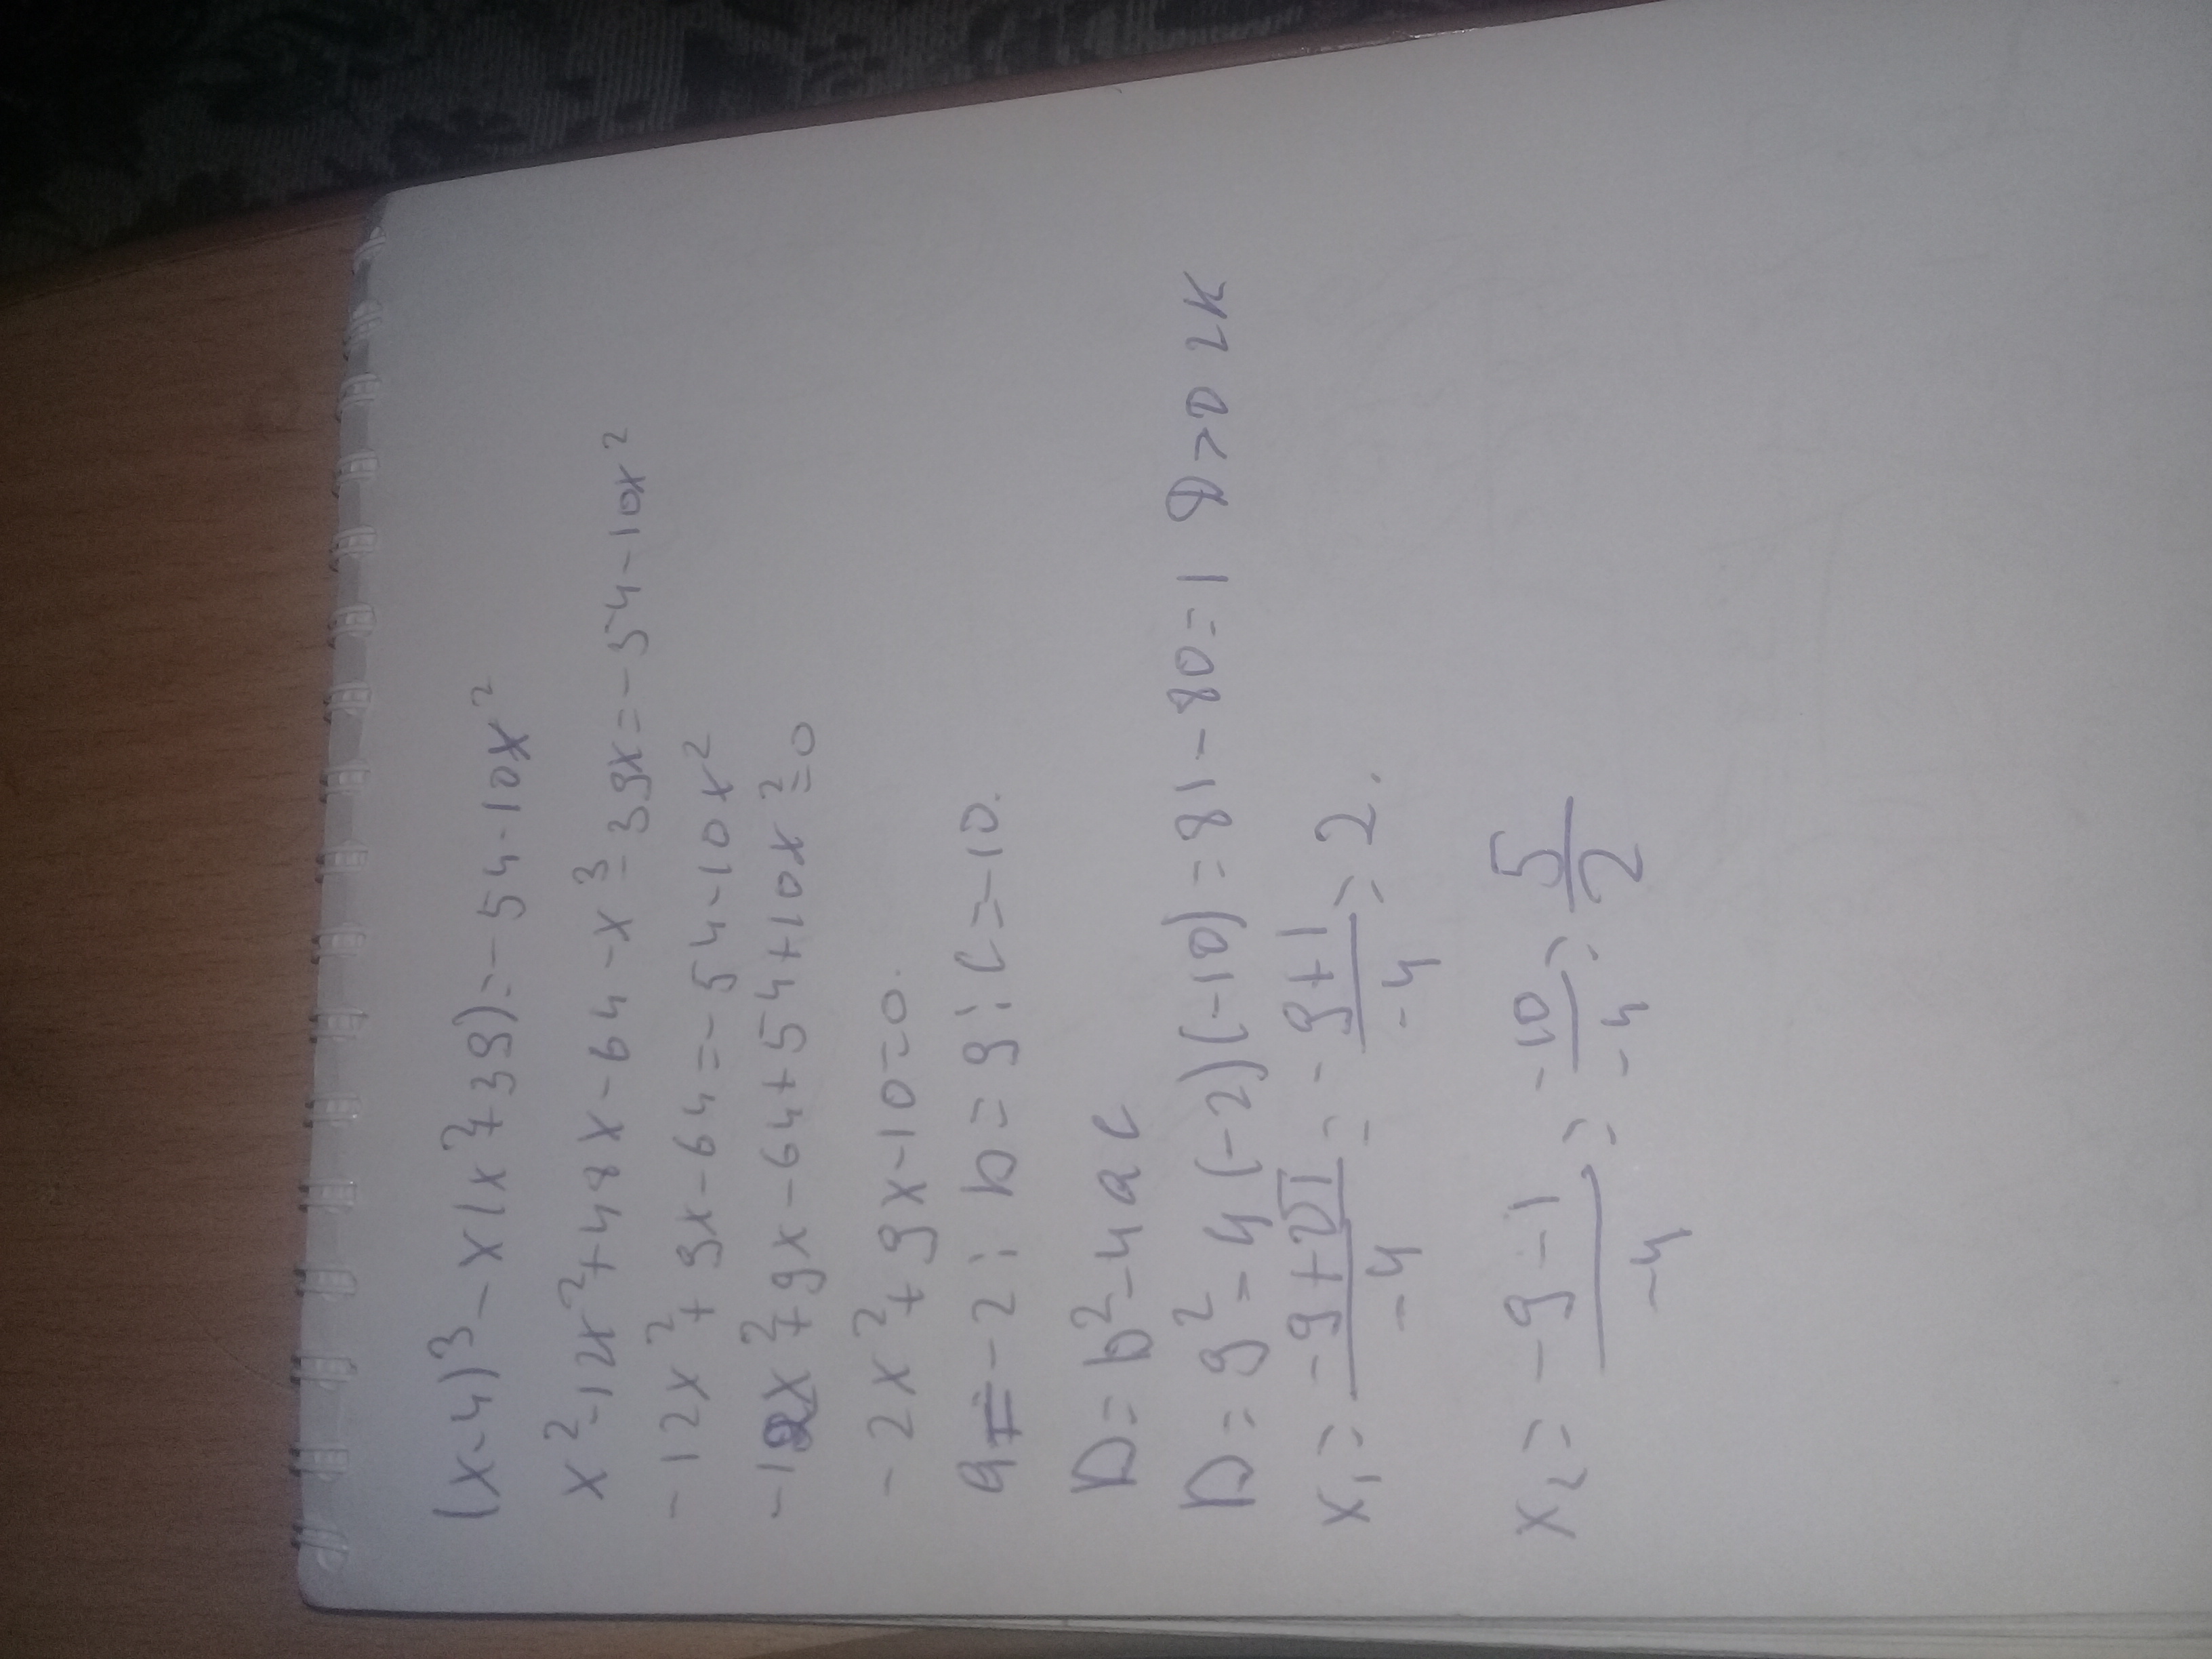 (x-4)³-x(x²+39)=-54-10x²
x²-12x²+48x-64-x³-39x=-54-10x²
-12x²+9x-64=-54-10x²
-12x²+9x-64+54+10x²=0
-2x²+9x-10=0.
a=-2; b=9; c=-10.
D=b²-4ac
D=9²-4(-2)(-10)=81-80=1 D>0 2К
x₁=\frac{-9+√1}{-4}=\frac{-9+1}{-4}=2.
x₂=\frac{-9-1}{-4}=\frac{-10}{-4}=\frac{5}{2}